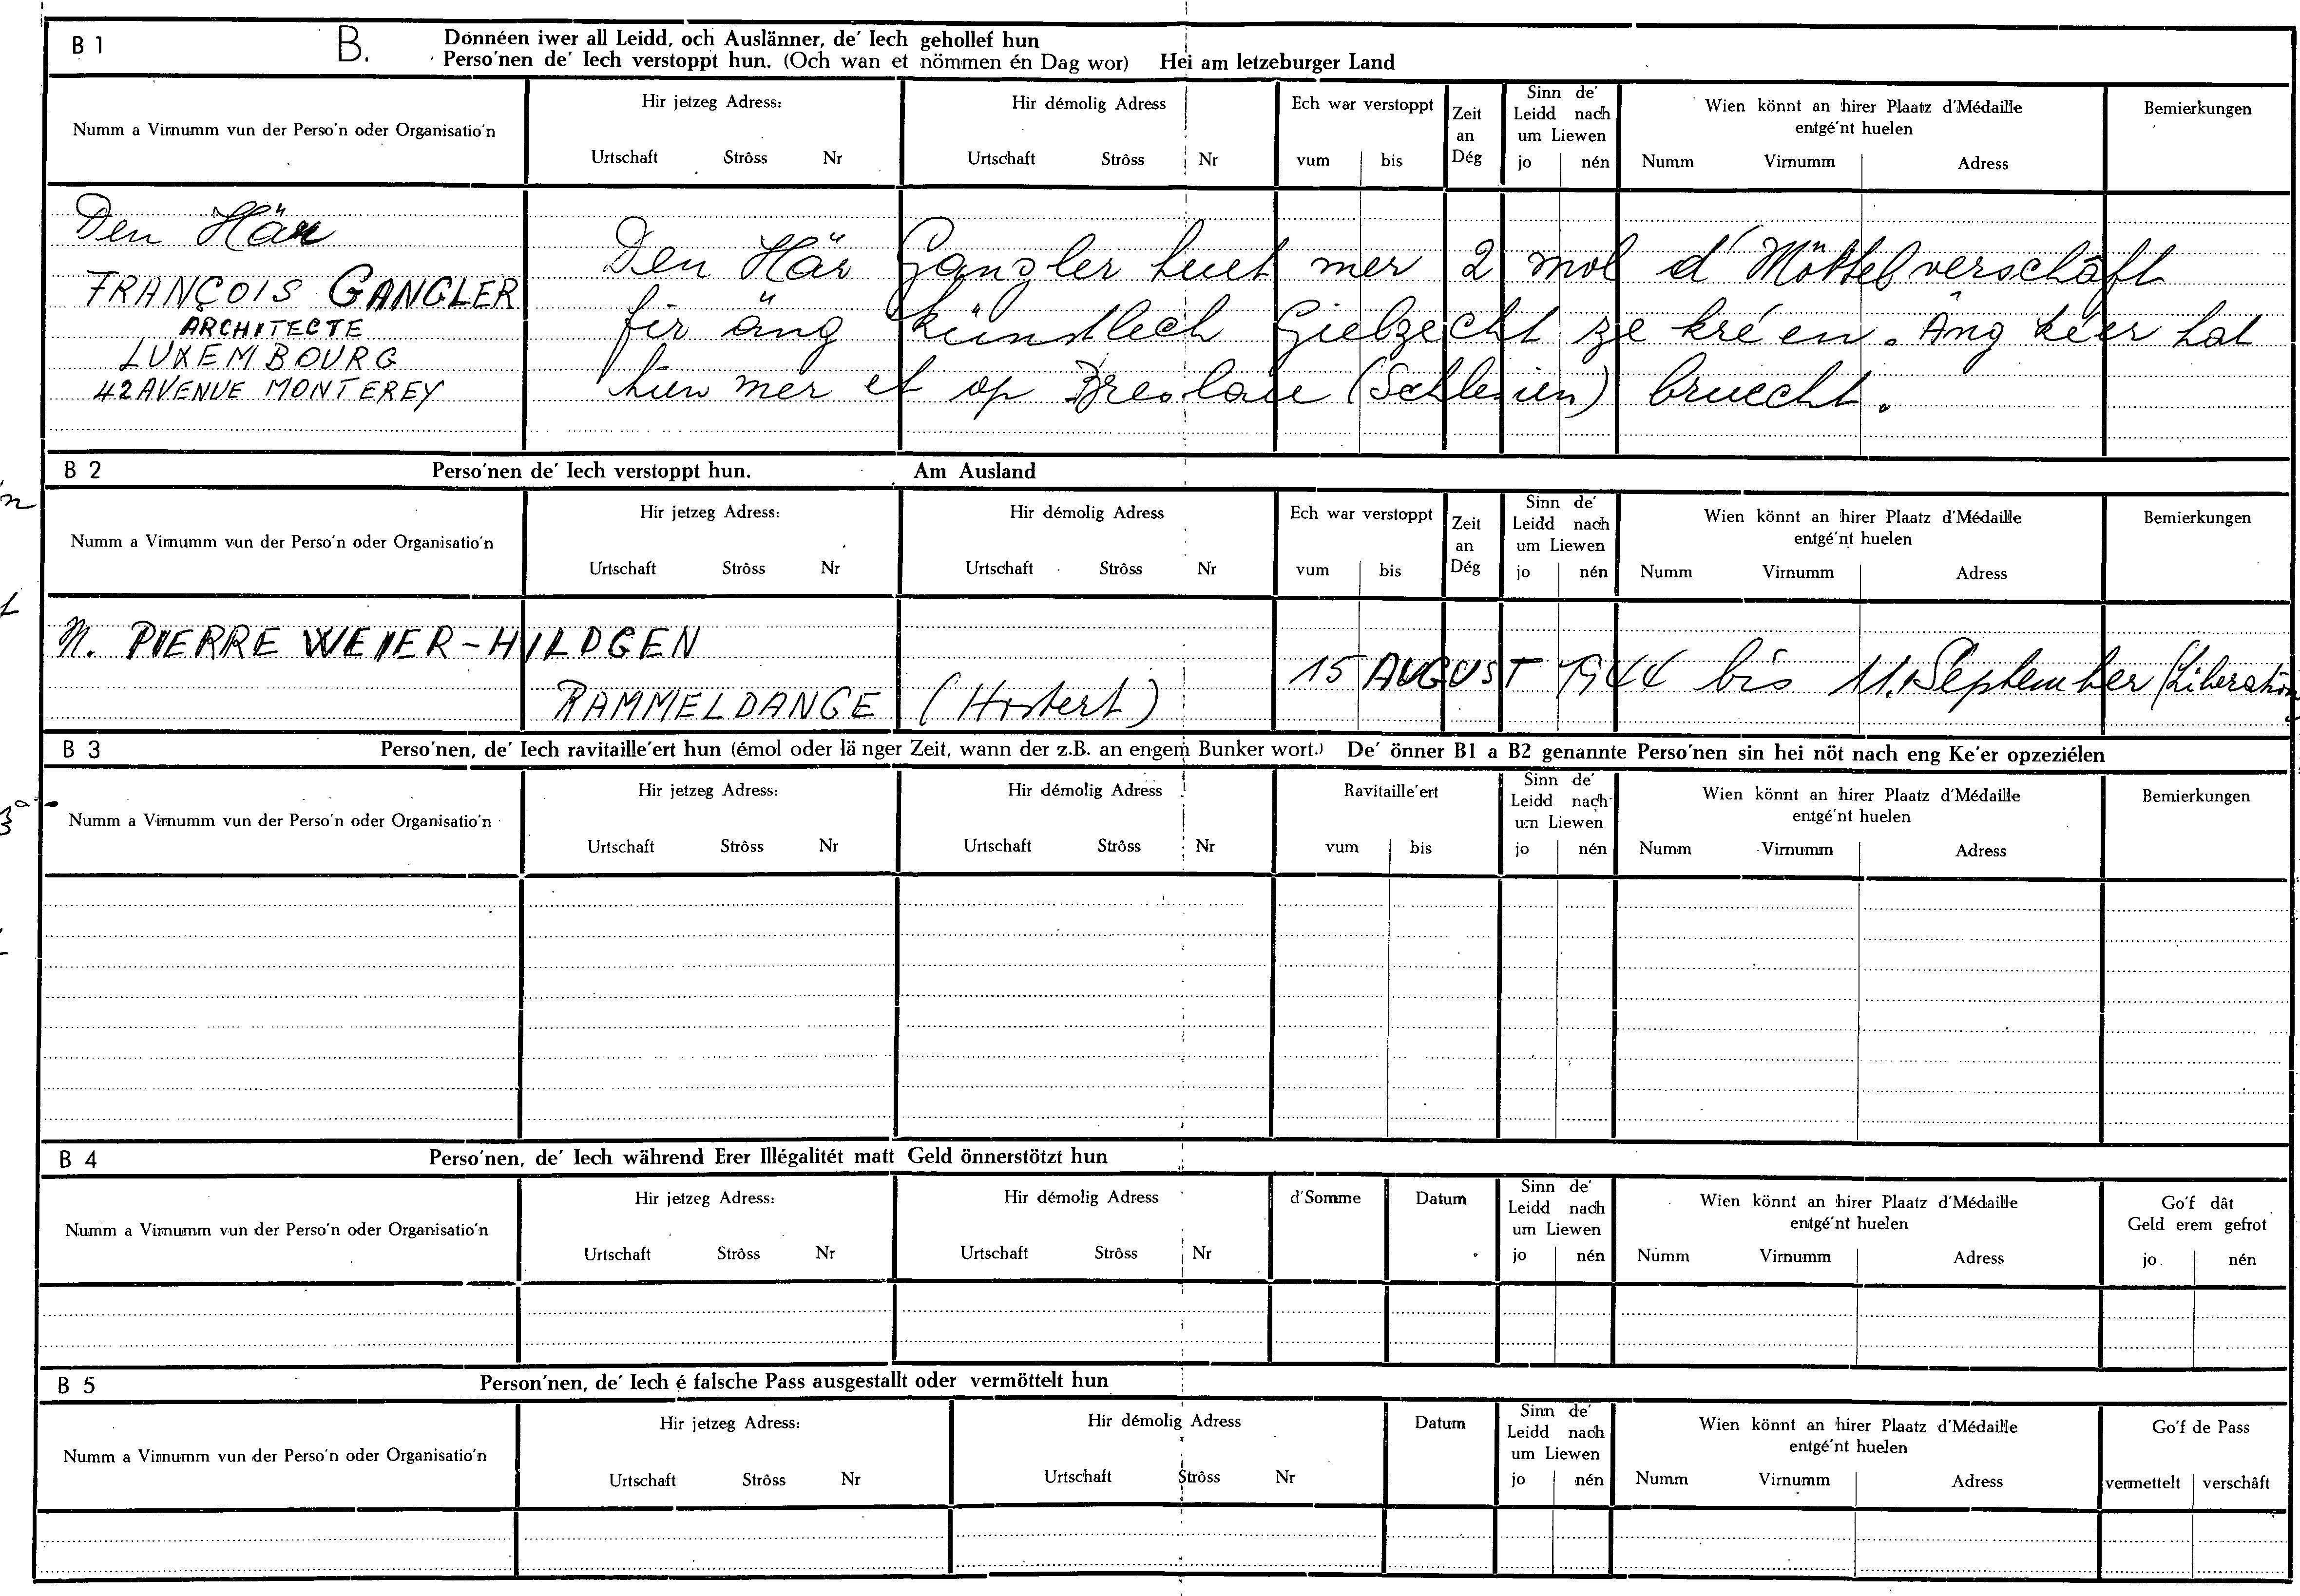 B 1 B. Donnéen iwer all Leidd, och Auslänner, de' Iech gehollef hun
Perso'nen de' Iech verstoppt hun. (Och wan et nömmen én Dag wor) Hei am letzeburger Land
Numm a Virnumm vun der Perso'n oder Organisatio'n
Hir jetzeg Adress:
Urtschaft Strôss Nr
Hir démolig Adress
Urtschaft Strôss Nr
Ech war verstoppt
vum bis
Zeit
an
Dég
Sinn de'
Leidd nach
um Liewen
jo nén
Wien könnt an hirer Plaatz d'Médaille
entgé'nt huelen
Numm Virnumm Adress
Bemierkungen
Den Här
FRANÇOIS GANGLER
ARCHITECTE
LUXEMBOURG
42 AVENUE MONTEREY
Den Här Gangler huet mer 2 mol d'Möttel verschâft
fir äng künstlech Gielzecht ze kré en. Äng ké'er hat
hien mer et op Breslau (Schlesien) bruecht.
B 2 Perso'nen de' Iech verstoppt hun. Am Ausland
Numm a Virnumm vun der Perso'n oder Organisatio'n
Hir jetzeg Adress:
Urtschaft Strôss Nr
Hir démolig Adress
Urtschaft Strôss Nr
Ech war verstoppt
vum bis
Zeit
an
Dég
Sinn de'
Leidd nach
um Liewen
jo nén
Wien könnt an hirer Plaatz d'Médaille
entgé'nt huelen
Numm Virnumm Adress
Bemierkungen
M. PIERRE WEIER-HILDGEN
RAMMELDANGE (Hostert)
15 AUGUST 1944 bis 11. September (Liberation
B 3 Perso'nen, de' Iech ravitaille'ert hun (émol oder länger Zeit, wann der z.B. an engem Bunker wort.) De' önner B1 a B2 genannte Perso'nen sin hei nöt nach eng Ke'er opzeziélen
Numm a Virnumm vun der Perso'n oder Organisatio'n
Hir jetzeg Adress:
Urtschaft Strôss Nr
Hir démolig Adress
Urtschaft Strôss Nr
Ravitaille'ert
vum bis
Sinn de'
Leidd nach
um Liewen
jo nén
Wien könnt an hirer Plaatz d'Médaille
entgé'nt huelen
Numm Virnumm Adress
Bemierkungen
B 4 Perso'nen, de' Iech während Erer Illégalitét matt Geld önnerstötzt hun
Numm a Virnumm vun der Perso'n oder Organisatio'n
Hir jetzeg Adress:
Urtschaft Strôss Nr
Hir démolig Adress
Urtschaft Strôss Nr
d'Somme
Datum
Sinn de'
Leidd nach
um Liewen
jo nén
Wien könnt an hirer Plaatz d'Médaille
entgé'nt huelen
Numm Virnumm Adress
Go'f dât
Geld erem gefrot
jo. nén
B 5 Person'nen, de' Iech é falsche Pass ausgestallt oder vermöttelt hun
Numm a Virnumm vun der Perso'n oder Organisatio'n
Hir jetzeg Adress:
Urtschaft Strôss Nr
Hir démolig Adress
Urtschaft Strôss Nr
Datum
Sinn de'
Leidd nach
um Liewen
jo nén
Wien könnt an hirer Plaatz d'Médaille
entgé'nt huelen
Numm Virnumm Adress
Go'f de Pass
vermettelt verschâft